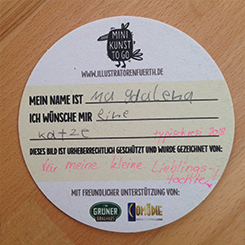 MINI
KUNST
TO GO
WWW.ILLUSTRATORENFUERTH.DE
MEIN NAME IST Magdalena
ICH WÜNSCHE MIR Eine
Katze
DIESES BILD IST URHEBERRECHTLICH GESCHÜTZT UND WURDE GEZEICHNET VON:
für meine kleine Lieblings-
tochter
MIT FREUNDLICHER UNTERSTÜTZUNG VON:
GRÜNER
BRAUHAUS